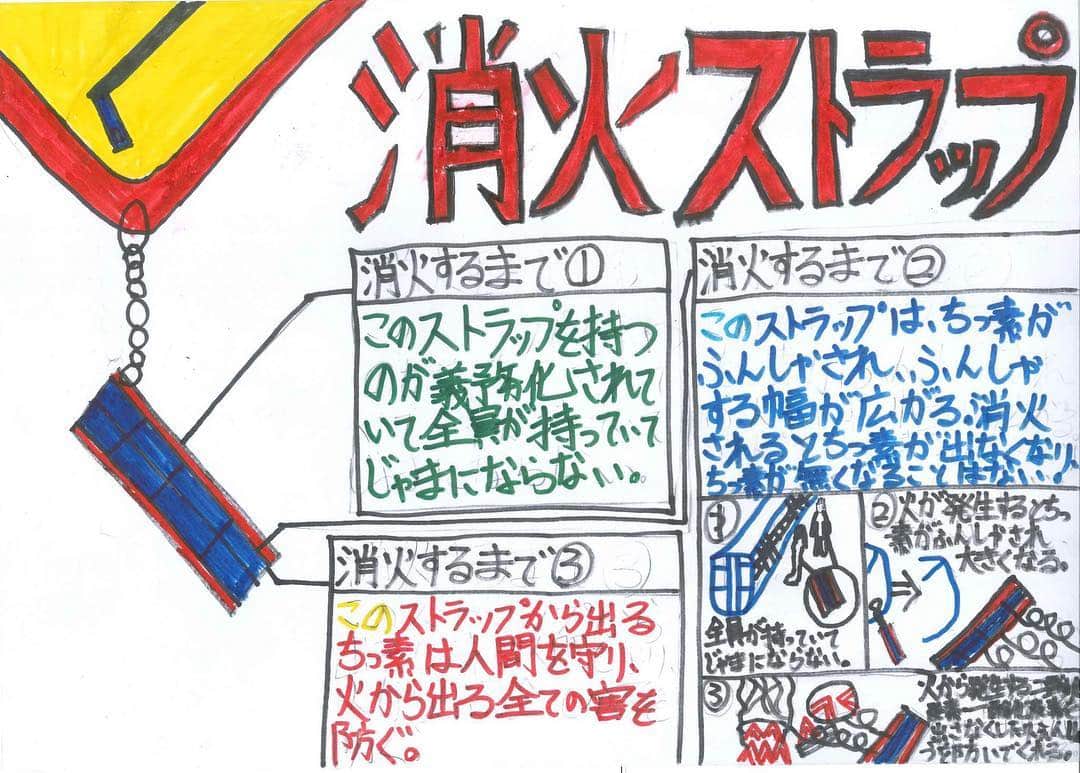 消火ストラップ
消火するまで①
このストラップを持つ
のが義務化されて
いて全員が持っていて
じゃまにならない。
消火するまで②
このストラップは、ちっ素が
ふんしゃされ、ふんしゃ
する幅が広がる。消火
されるとちっ素が出なくなり、
ちっ素が無くなることはない。
消火するまで③
このストラップから出る
ちっ素は人間を守り、
火から出る全ての害を
防ぐ。
①
全員が持っていて
じゃまにならない。
②火が発生するとちっ
素がふんしゃされ
大きくなる。
③
火から発生する
出さなくしたり
防いでくれる。